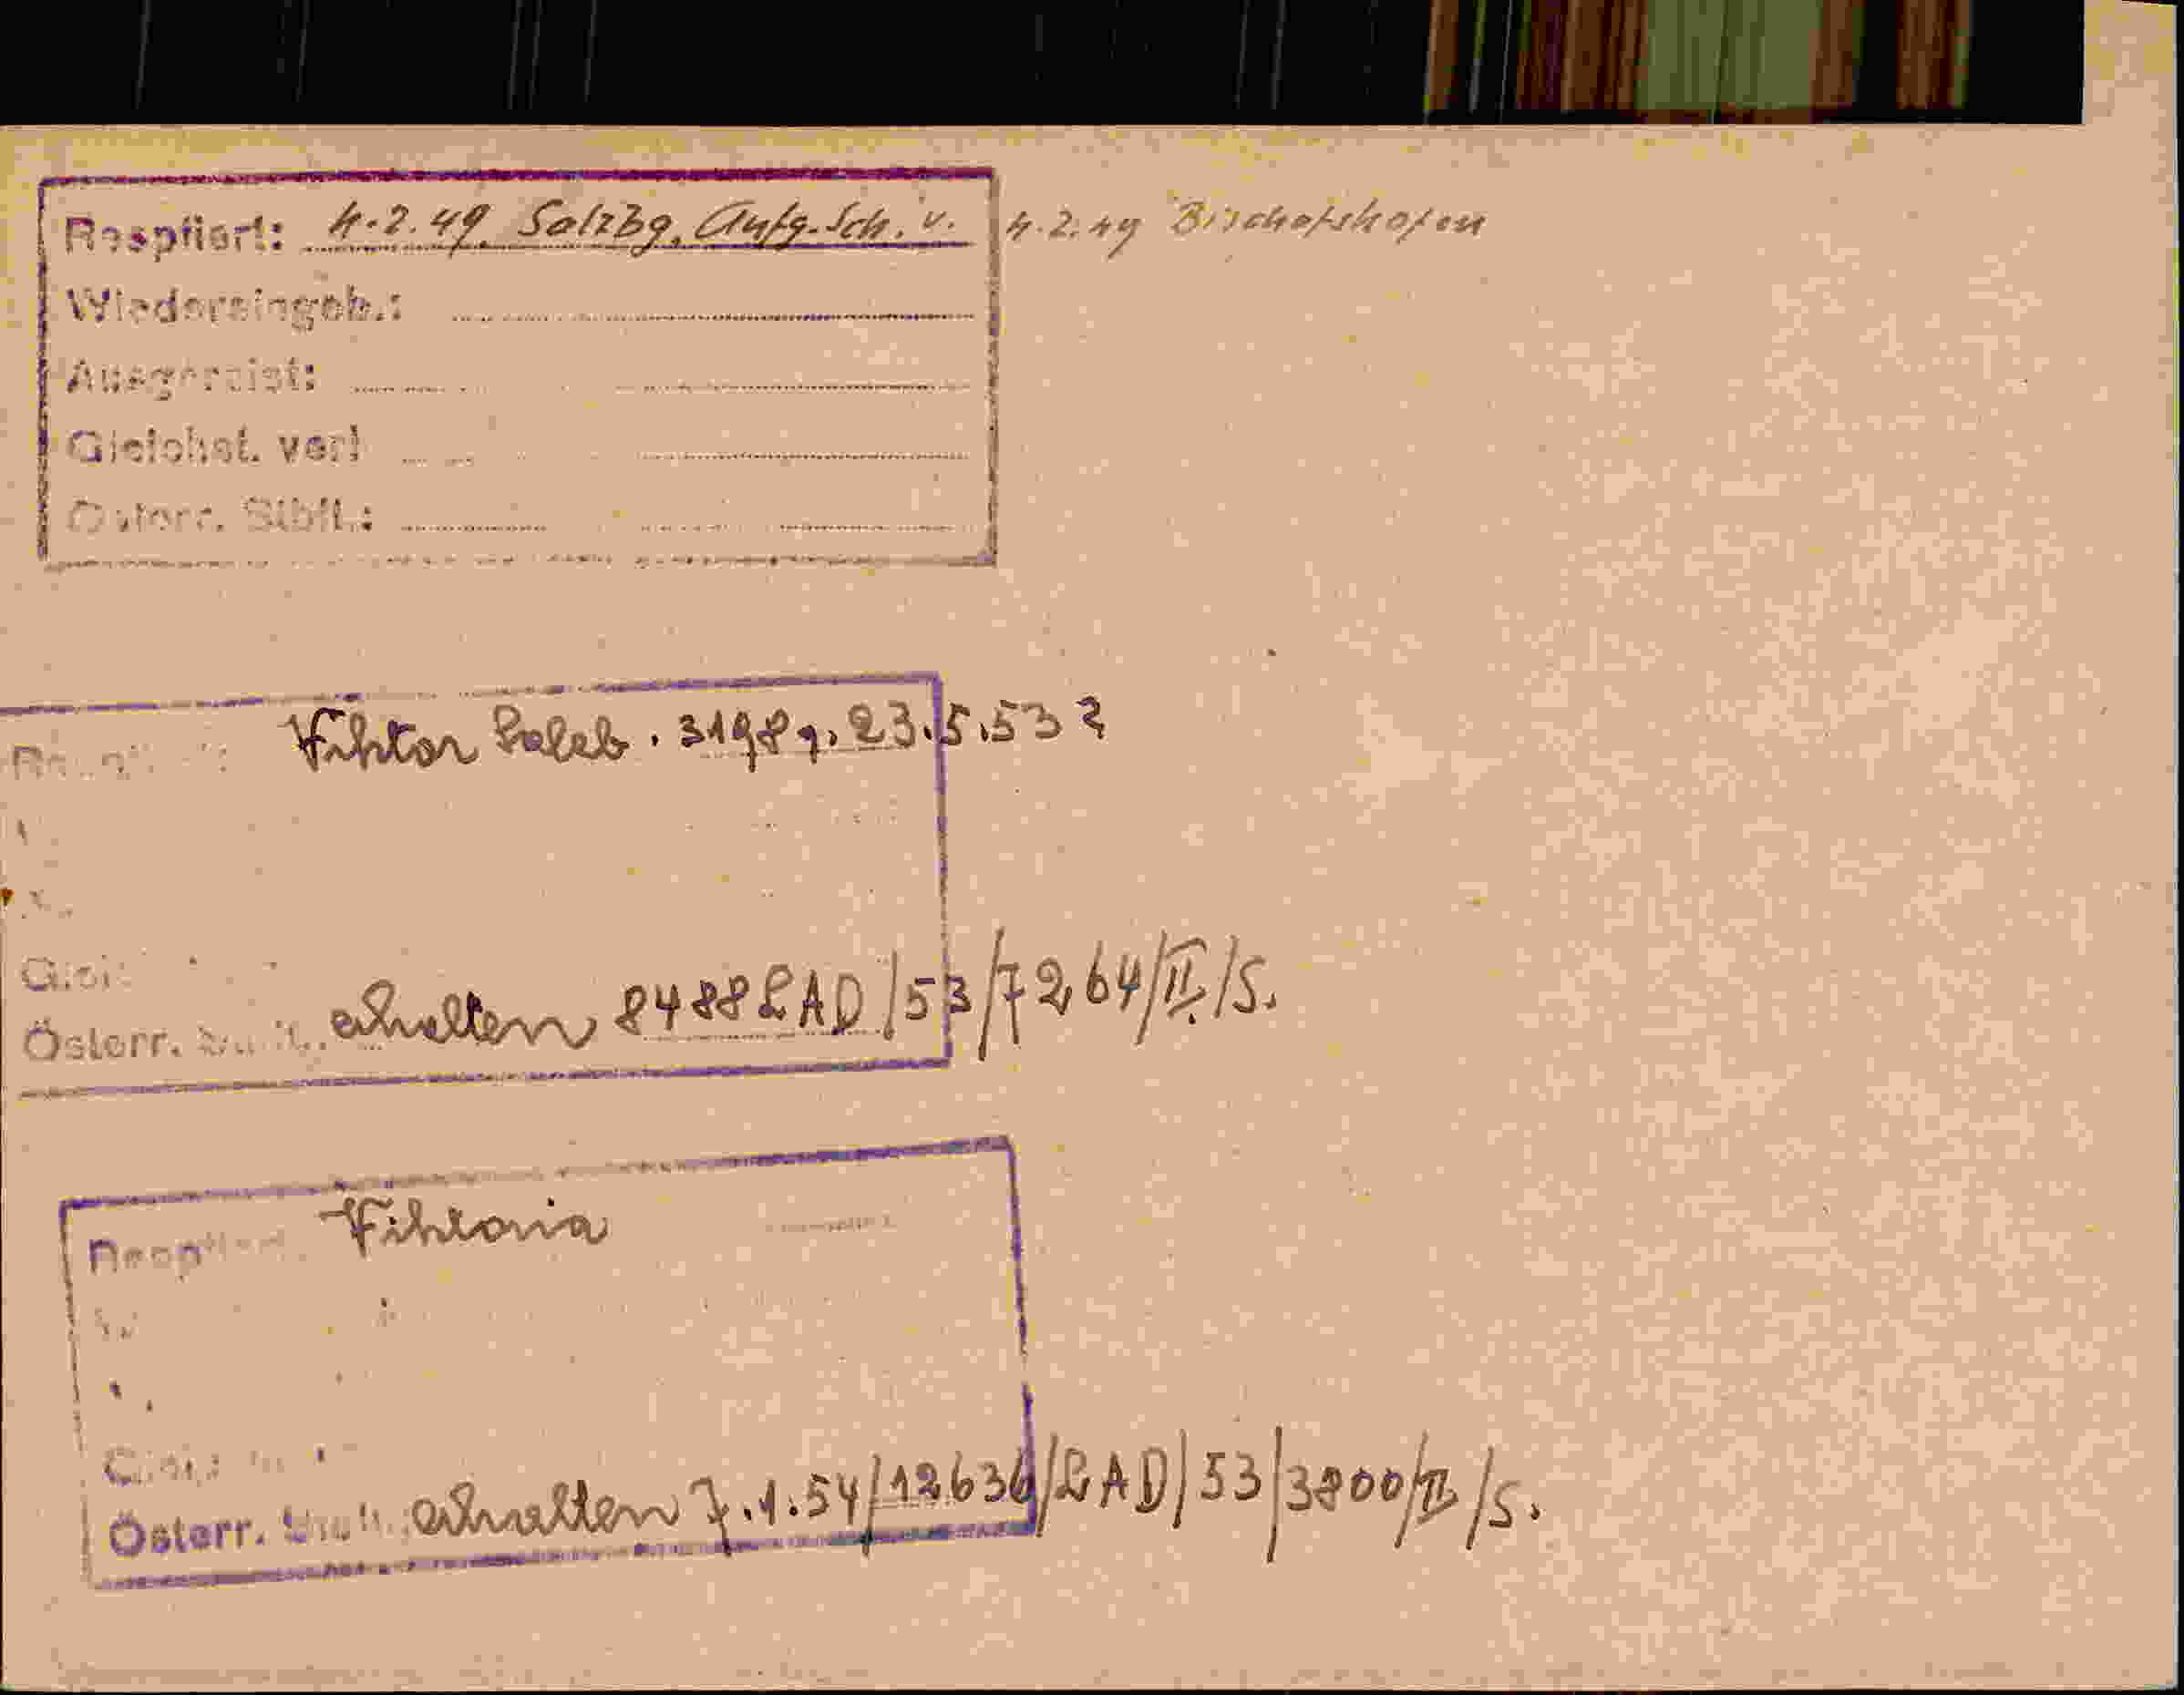 Resptiert: 4.2.49 Salzbg. Aufg. Sch. v. 4.2.49 Bischofshofen
Wiedereingeb.:
Ausgereist:
Gleichst. verl
Österr. Stbft.:
Viktor Saleb. 31989. 23.5.53
Österr. erhalten 8488 LAD/53/7264/II/S.
Viktoria
Österr. erhalten 7.1.54/12636/LAD/53/3800/II/S.